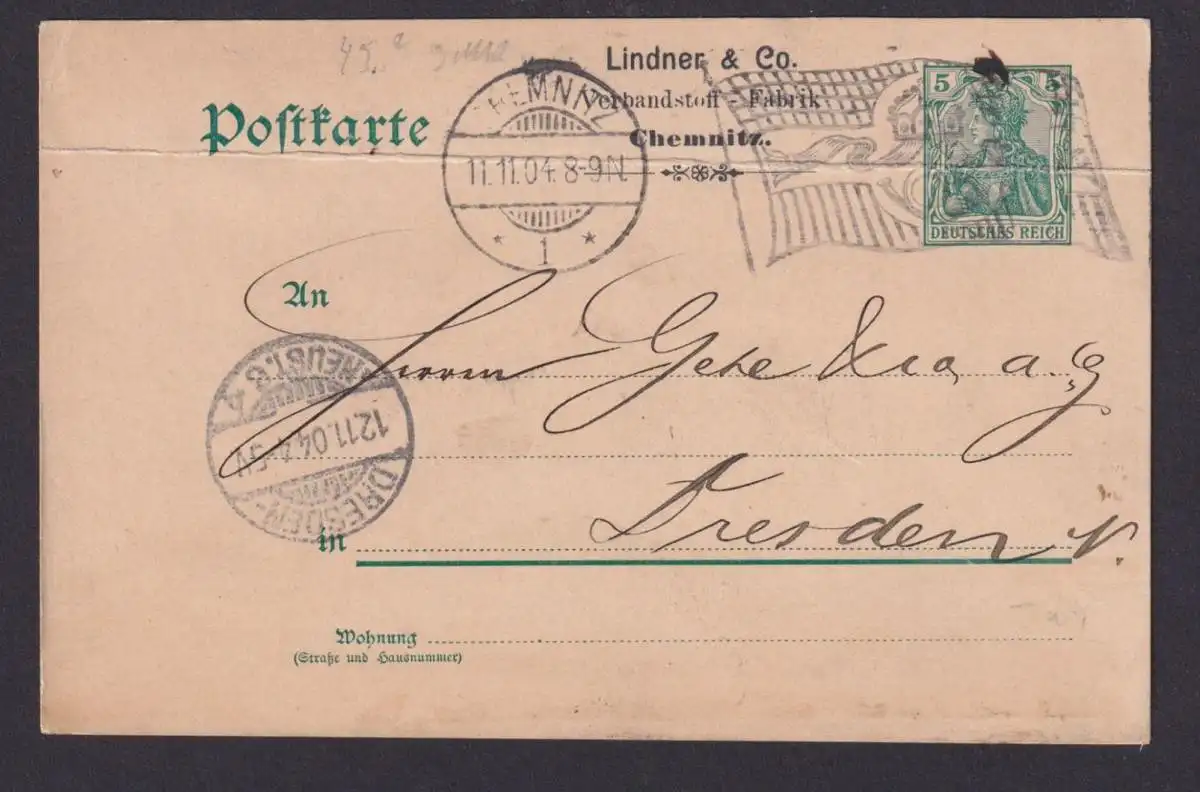 Lindner & Co.
Verbandstoff-Fabrik
Chemnitz.
Postkarte
CHEMNITZ
11.11.04. 8-9N.
* 1 *
5 5
DEUTSCHES REICH
An
Herren Gehe & Co, a. G
DRESDEN-
12.11.04. 4-5V.
NEUST. 6
in Dresden N.
Wohnung
(Straße und Hausnummer)